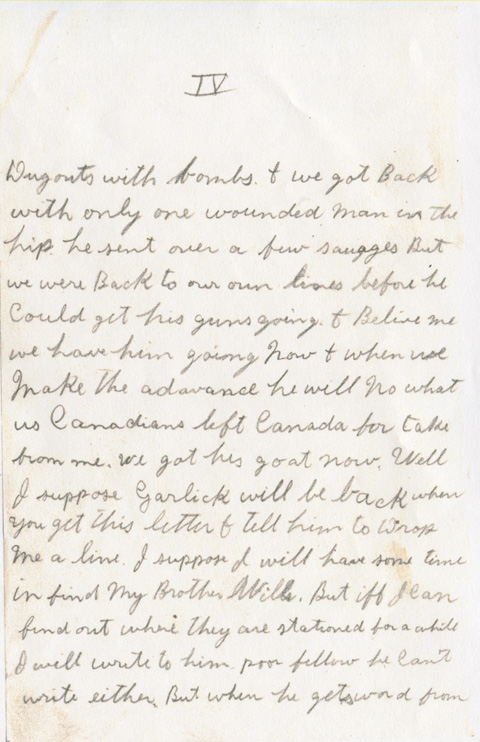 IV
Dugouts with bombs. & we got Back
with only one wounded man in the
hip. he sent over a few sauages But
we were Back to our own lines before he
Could get his guns going. & Belive me
we have him going Now & when we
Make the adavance he will No what
us Canadians left Canada for take
from me. we got his goat now. Well
I suppose Garlick will be back when
you get this letter & tell him to Drop
Me a line. I suppose I will have some time
in find My Brother Will. But iff I Can
find out where they are stationed for a while
I will write to him. poor fellow he Can't
write either. But when he gets word from